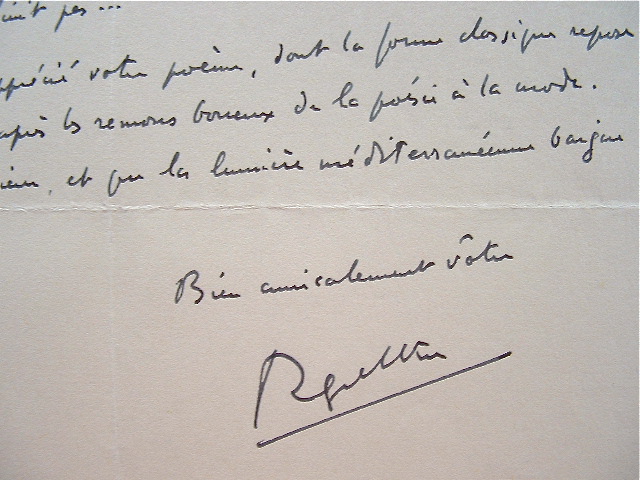 pas...
apprécié votre poème, dont la forme classique repose
après les remous boueux de la poésie à la mode.
et que la lumière méditerranéenne baigne
Bien amicalement vôtre